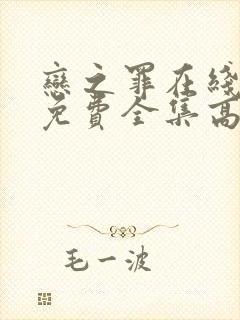 戀之罪在綫
免費全集高
毛一波